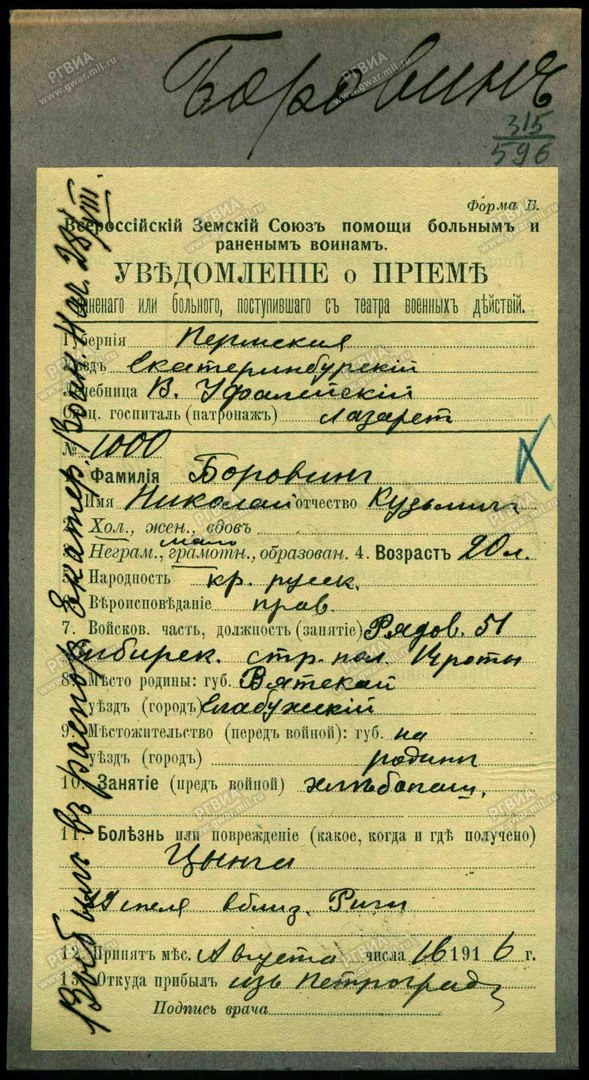 Боровинъ
315
596
Форма Б.
Всероссійскій Земскій Союзъ помощи больнымъ и
раненымъ воинамъ.
УВѢДОМЛЕНІЕ о ПРІЕМѢ
раненаго или больного, поступившаго съ театра военныхъ дѣйствій.
Губернія Пермская
Уѣздъ Екатеринбурскій
Лечебница В. Уфалейскій
госпиталь (патронажъ) Лазарет
№ 1000
Фамилія Боровинъ
Имя Николай отчество Кузьмич
Хол., жен., вдов
мало
Неграм., грамотн., образован. 4. Возрастъ 20 л.
Народность кр. русск.
Вѣроисповѣданіе прав.
7. Войсков. часть, должность (занятіе) Рядов. 51
Сибирск. стр. пол. роты
8. Мѣсто родины: губ. Вятской
уѣздъ (городъ) Елабужскій
9. Мѣстожительство (передъ войной): губ. на
уѣздъ (городъ) родины
10. Занятіе (предъ войной) хлѣбопаш.
11. Болѣзнь или поврежденіе (какое, когда и гдѣ получено)
Цынга
Апреля вблиз. Риги
12. Принятъ мѣс. Августа числа 16 1916 г.
13. Откуда прибылъ изъ Петрограда
Подпись врача
Выбылъ въ распор. Екатер. Воин. Нач. 28/VIII.
РГВИА
www.gwar.mil.ru